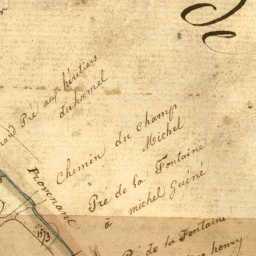 Pré aux héritiers
duhamel
Chemin du champ
Michel
Provenant
Pré de la Fontaine
à michel Guéné
Pré de la Fontaine
henry